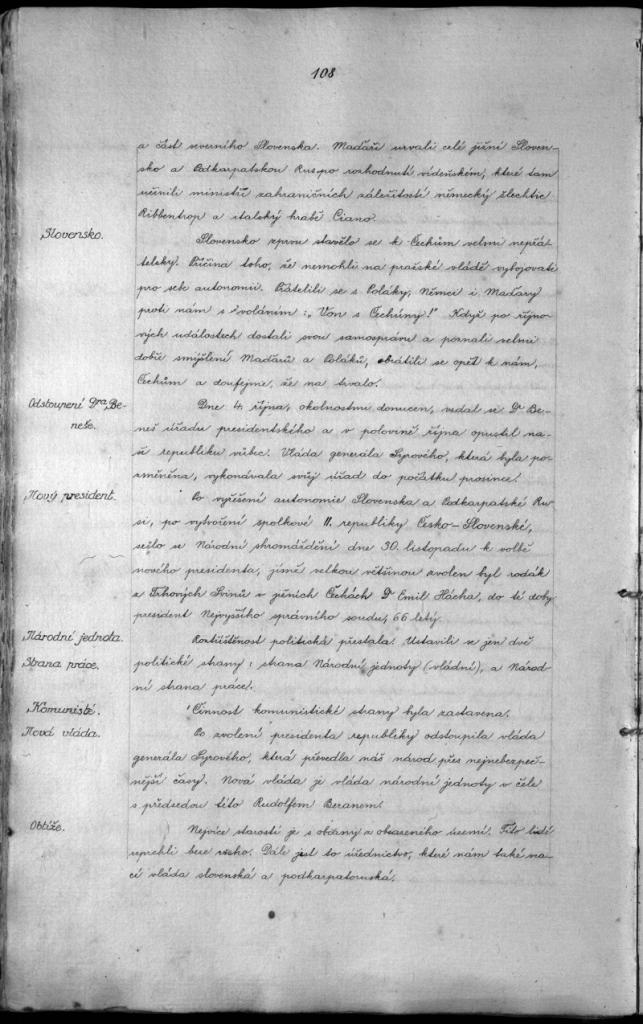 108
a část severního Slovenska. Maďaři urvali celé jižní Sloven-
sko a Podkarpatskou Rus po rozhodnutí vídeňském, které tam
učinili ministři zahraničních záležitostí německý šlechtic
Ribbentrop a italský hrabě Ciano.
Slovensko.
Slovensko zprvu stavělo se k Čechům velmi nepřá-
telsky. Příčina toho, že nemohli na pražské vládě vybojovati
pro sebe autonomii. Přátelili se s Poláky, Němci i Maďary
proti nám s voláním: „Von s Čechúny!" Když po říjno-
vých událostech dostali svou samosprávu a poznali velmi
dobře smýšlení Maďarů a Poláků, obrátili se opět k nám,
Čechům a doufejme, že na trvalo.
Odstoupení Dra Be-
neše.
Dne 4. října, okolnostmi donucen, vzdal se Dr Be-
neš úřadu presidentského a v polovině října opustil na-
ši republiku vůbec. Vláda generála Syrového, která byla po-
změněna, vykonávala svůj úřad do počátku prosince.
Nový president.
Po vyřešení autonomie Slovenska a Podkarpatské Ru-
si, po vytvoření spolkové II. republiky Česko-Slovenské,
sešlo se Národní shromáždění dne 30. listopadu k volbě
nového presidenta, jímž velkou většinou zvolen byl rodák
z Trhových Svinů v jižních Čechách Dr Emil Hácha, do té doby
president Nejvyššího správního soudu, 66 letý.
Národní jednota.
Strana práce.
Roztříštěnost politická přestala. Ustavili se jen dvě
politické strany: strana Národní jednoty (vládní), a Národ-
ní strana práce.
Komunisté.
Činnost komunistické strany byla zastavena.
Nová vláda.
Po zvolení presidenta republiky odstoupila vláda
generála Syrového, která převedla náš národ přes nejnebezpeč-
nější časy. Nová vláda je vláda národní jednoty v čele
s předsedou této Rudolfem Beranem.
Obtíže.
Nejvíce starostí je s občany z obsazeného území. Tito lidé
uprchli beze všeho. Dále jest to úřednictvo, které nám také va-
cí vláda slovenská a podkarpatoruská.